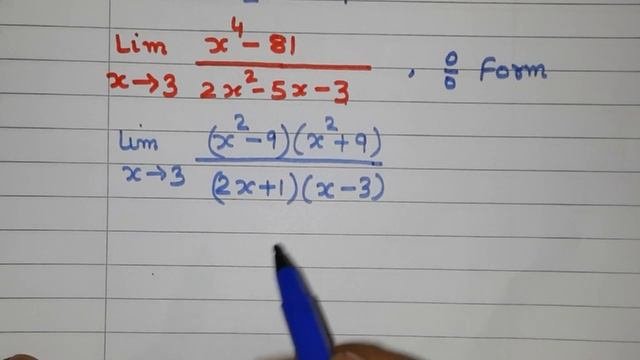 Lim x→3 (x⁴ - 81)/(2x² - 5x - 3) , 0/0 Form
Lim x→3 (x² - 9)(x² + 9)/(2x + 1)(x - 3)